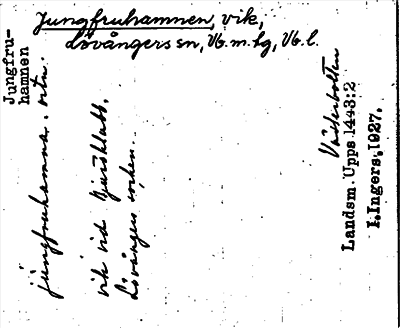 Jungfruhamnen, vik,
Lövångers sn, Vb.m.tg, Vb.l.
Jungfru-
hamnen
jungfruhamna. ortn.
vik vid Bjuröklubb.
Lövångers socken.
Västerbotten
Landsm. Upps. 1443:2
I. Ingers, 1927.